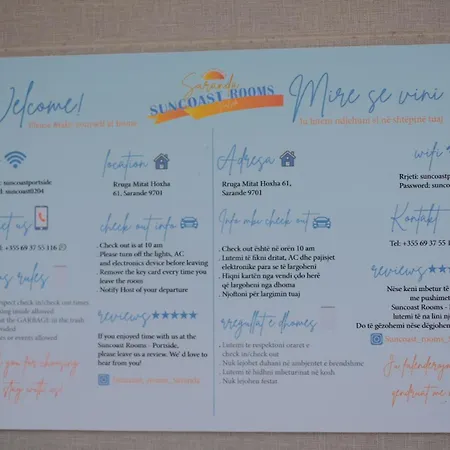 Welcome!
Please make yourself at home
Saranda
SUNCOAST ROOMS
Mire se vini
Ju lutem ndjehuni si në shtëpinë tuaj
suncoastportside
suncoast0204
location
Rruga Mitat Hoxha
61, Sarande 9701
us
Tel: +355 69 37 55 116
check out info
. Check out is at 10 am
. Please turn off the lights, AC
and electronics device before leaving
. Remove the key card every time you
leave the room
. Notify Host of your departure
rules
respect check in/check out room
smoking inside allowed
the GARBAGE in the trash
or events allowed
reviews
If you enjoyed time with us at the
Suncoast Rooms - Portside,
please leave us a review. We'd love to
hear from you!
you for choosing
stay with us!
suncoast_rooms_saranda
Adresa
Rruga Mitat Hoxha 61,
Sarande 9701
Info mbi check out
. Check out është në orën 10 am
. Lutemi të fikni dritat, AC dhe pajisjet
elektronike para se të largoheni
. Hiqni kartën nga vendi çdo herë
që largoheni nga dhoma
. Njoftoni për largimin tuaj
rregullat e dhomes
. Lutemi të respektoni oraret e
check in/check out
. Nuk lejohet duhani në ambjentet e brendshme
. Lutemi të hidhni mbeturinat në kosh
. Nuk lejohen festat
wifi
Rrjeti: suncoastp
Password: sunco
Kontakt
Tel: +355 69 37 55
reviews
Nëse keni mbetur të
me pushimet
Suncoast Rooms -
Lutemi të na lini nj
Do të gëzohemi nëse dëgjohem
suncoast_rooms_
Ju falenderojm
qendruat me